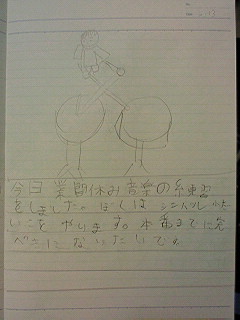 今日業間休み音楽の練習
をしました。ぼくは シンバル 小太
いこを やります。本番までに完
ぺきに なりたいです。